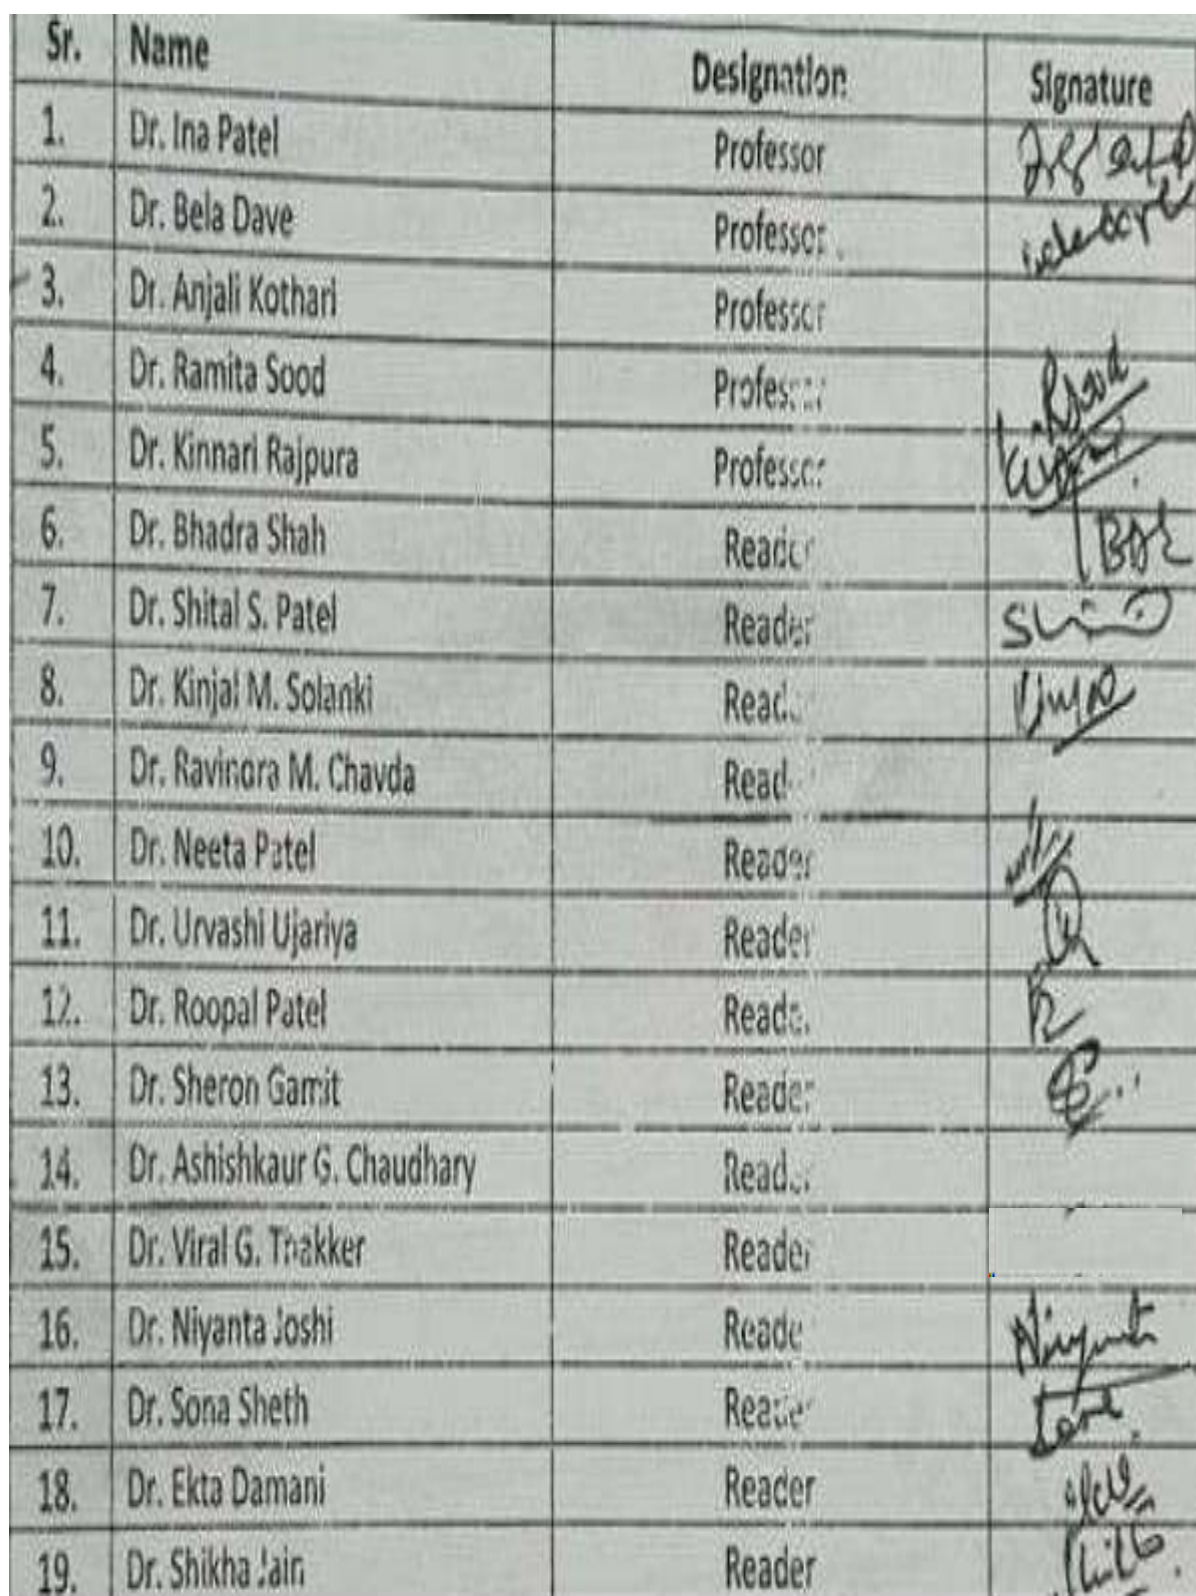 Sr. Name Designation Signature
1. Dr. Ina Patel Professor
2. Dr. Bela Dave Professor
3. Dr. Anjali Kothari Professor
4. Dr. Ramita Sood Professor RSood
5. Dr. Kinnari Rajpura Professor
6. Dr. Bhadra Shah Reader
7. Dr. Shital S. Patel Reader
8. Dr. Kinjal M. Solanki Reader
9. Dr. Ravindra M. Chavda Reader
10. Dr. Neeta Patel Reader
11. Dr. Urvashi Ujariya Reader
12. Dr. Roopal Patel Reader
13. Dr. Sheron Gamit Reader
14. Dr. Ashishkaur G. Chaudhary Reader
15. Dr. Viral G. Thakker Reader
16. Dr. Niyanta Joshi Reader Niyanta
17. Dr. Sona Sheth Reader Sona
18. Dr. Ekta Damani Reader
19. Dr. Shikha Jain Reader